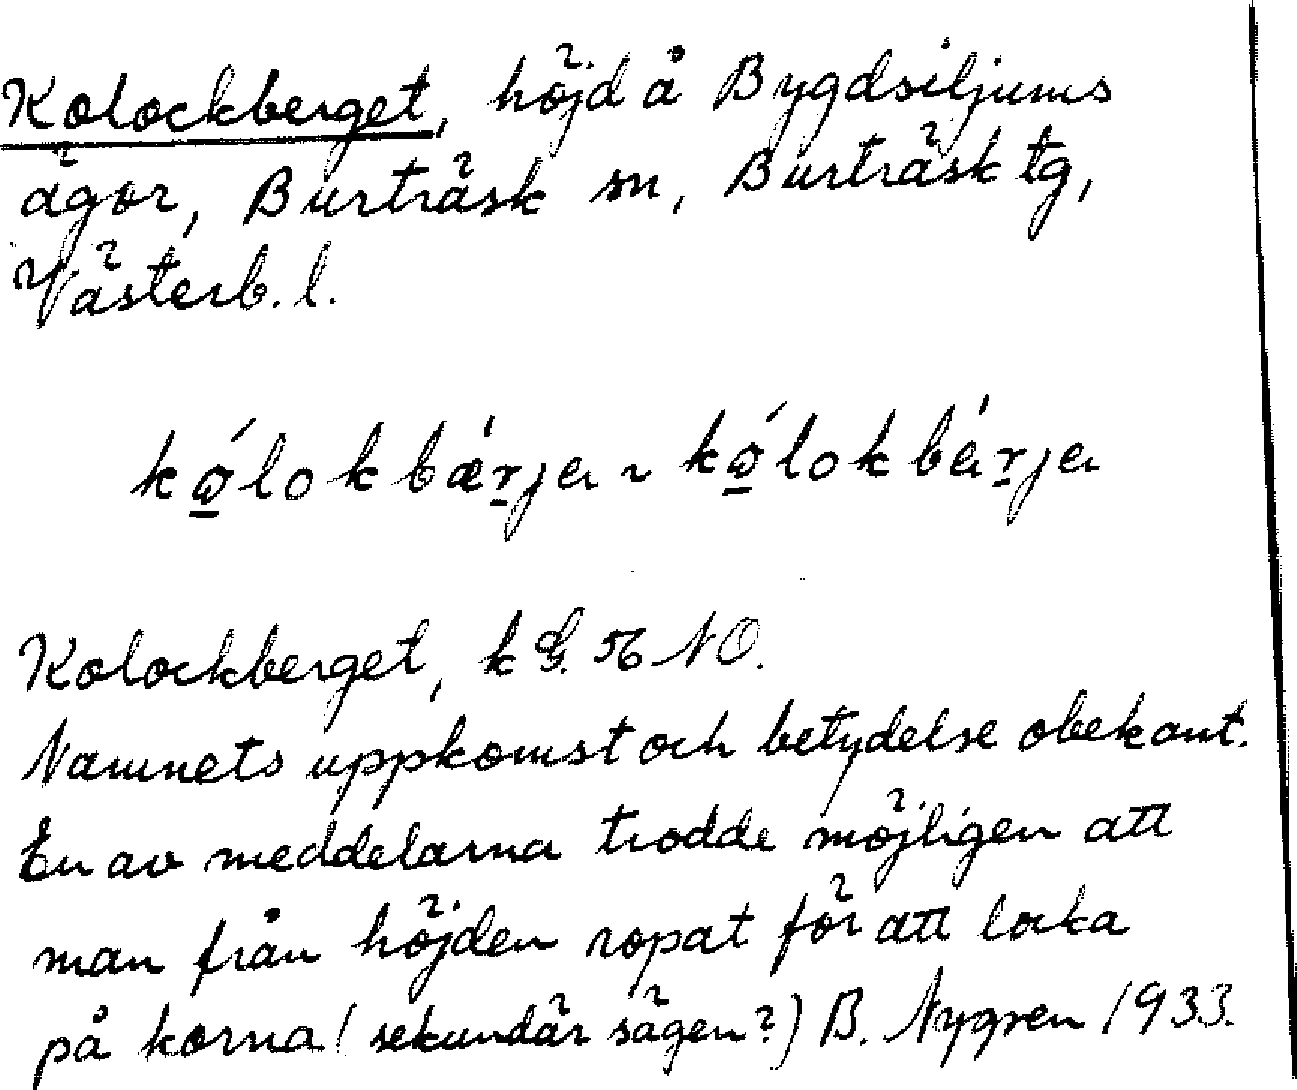 Kolockberget, höjd å Bygdsiljums
ägor, Burträsk sn, Burträsk tg,
Västerb. l.
kǫ́lokbǽrje ~ kǫ́lokbérje
Kolockberget, k G. NO.
Namnets uppkomst och betydelse obekant.
En av meddelarna trodde möjligen att
man från höjden ropat för att locka
på korna (sekundär sägen?) B. Nygren 1933.